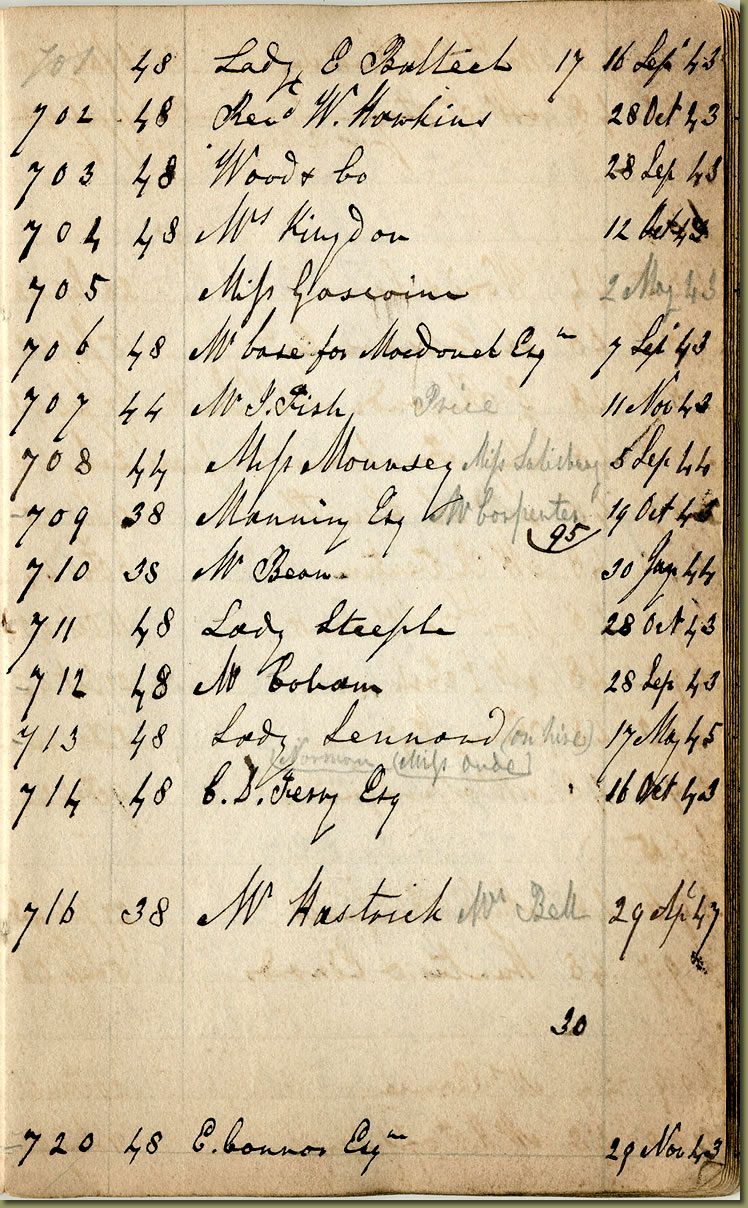 701 48 Lady E Balteel 17 16 Sepr 43
702 48 Revd W. Hawkins 28 Oct 43
703 48 Wood & Co 28 Sep 43
704 48 Mrs Kingdon 12 Oct 43
705 Miss Gascoine 2 May 43
706 48 Mr Case for Macdonel Esqre 7 Sep 43
707 44 Mr J. Fish Price 11 Nov 43
708 44 Miss Mounsey Miss Salisbury 5 Sep 44
709 38 Manning Esq Mr Carpenter 19 Oct 45
95
710 38 Mr Bean 30 Jan 44
711 48 Lady Steeple 28 Oct 43
712 48 Mr Cobham 28 Sep 43
713 48 Lady Lennard (on hire) 17 May 45
Norman (Miss
714 48 C. D. Ferry Esq 16 Oct 43
716 38 Mr Hastrick Mrs Bell 29 Apl 47
30
720 48 E. Connor Esqre 29 Nov 43